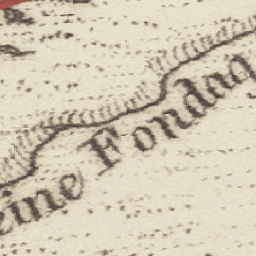 eine Fondaq